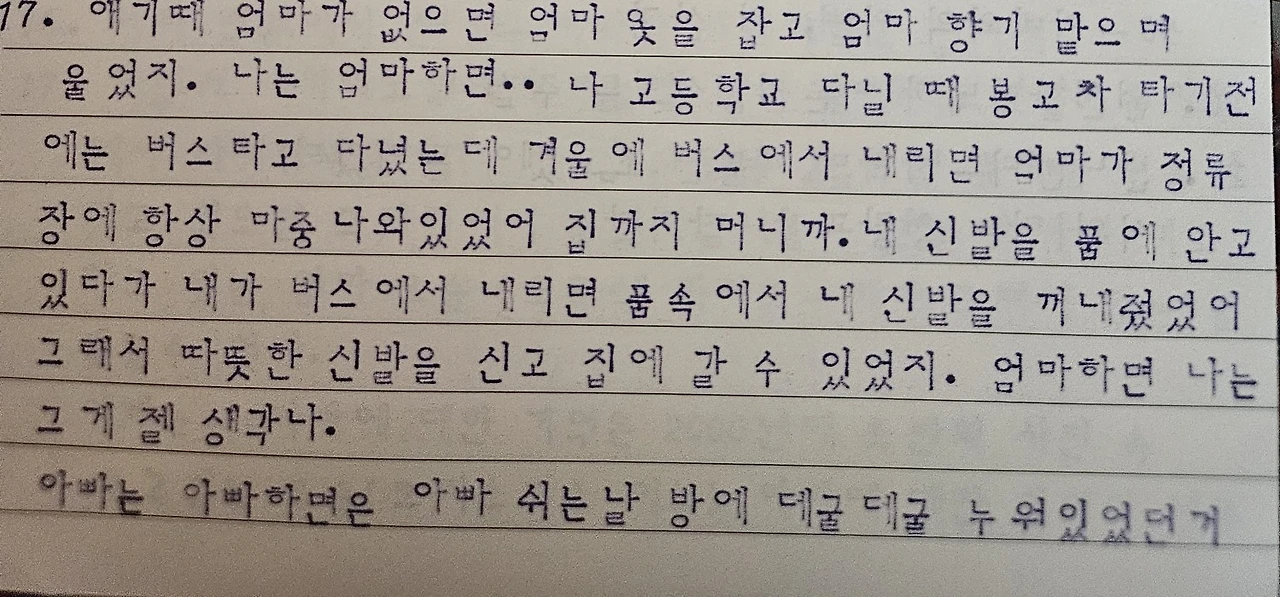 17. 애기때 엄마가 없으면 엄마 옷을 잡고 엄마 향기 맡으며
울었지. 나는 엄마하면.. 나 고등학교 다닐 때 봉고차 타기전
에는 버스 타고 다녔는데 겨울에 버스에서 내리면 엄마가 정류
장에 항상 마중나와있었어 집까지 머니까. 내 신발을 품에 안고
있다가 내가 버스에서 내리면 품속에서 내 신발을 꺼내줬었어
그래서 따뜻한 신발을 신고 집에 갈 수 있었지. 엄마하면 나는
그게 젤 생각나.
아빠는 아빠하면은 아빠 쉬는날 방에 데굴데굴 누워있었던거